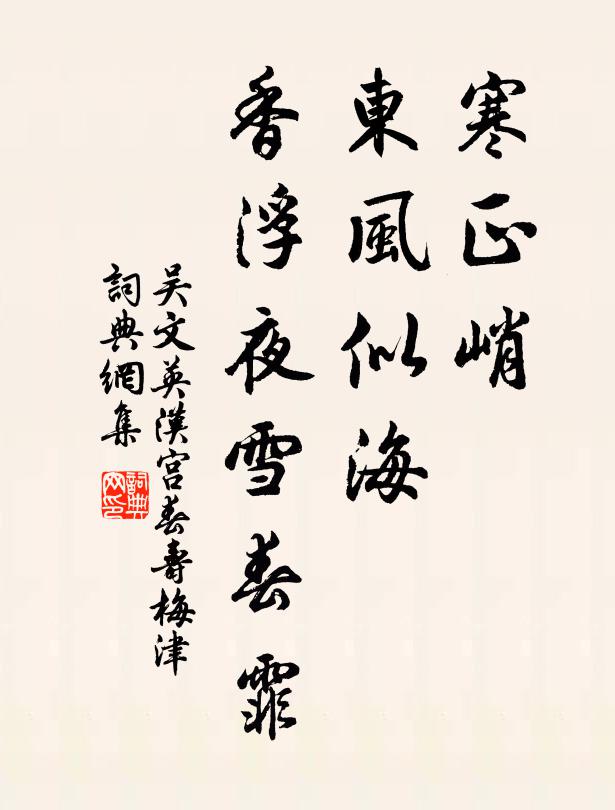 寒正峭
東風似海
香浮夜雪春霏
吴文英漢宮春壽梅津
詞典網集
詞典网印